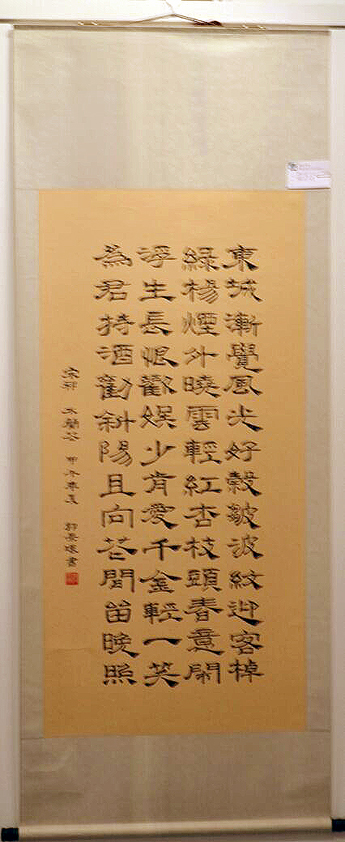 東城漸覺風光好縠皺波紋迎客棹
綠楊煙外曉雲輕紅杏枝頭春意鬧
浮生長恨歡娛少肯愛千金輕一笑
為君持酒勸斜陽且向花間留晚照
宋祁 木蘭花 甲午 書